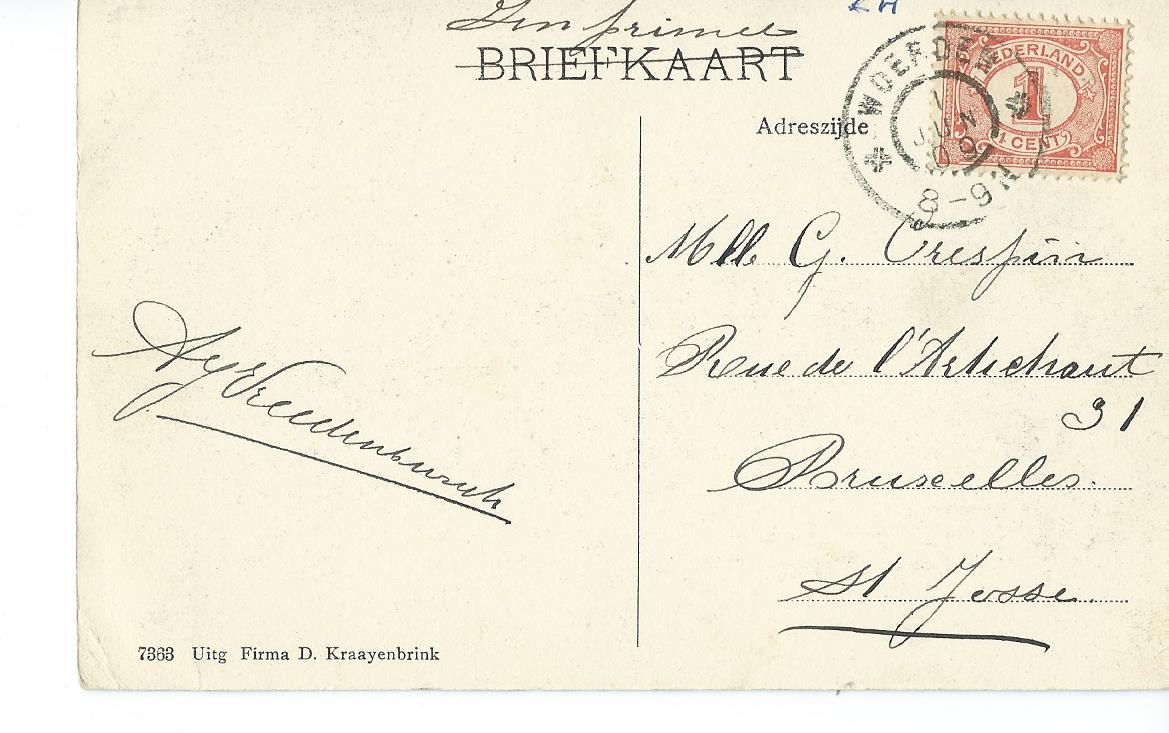 Imprimé
BRIEFKAART
Adreszijde
WOERDEN
1
JUN
09
8-9N
NEDERLAND
1
1 CENT
Mlle G. Crespin
Rue de l'Artichaut
31
Bruxelles.
St Josse.
7363 Uitg Firma D. Kraayenbrink